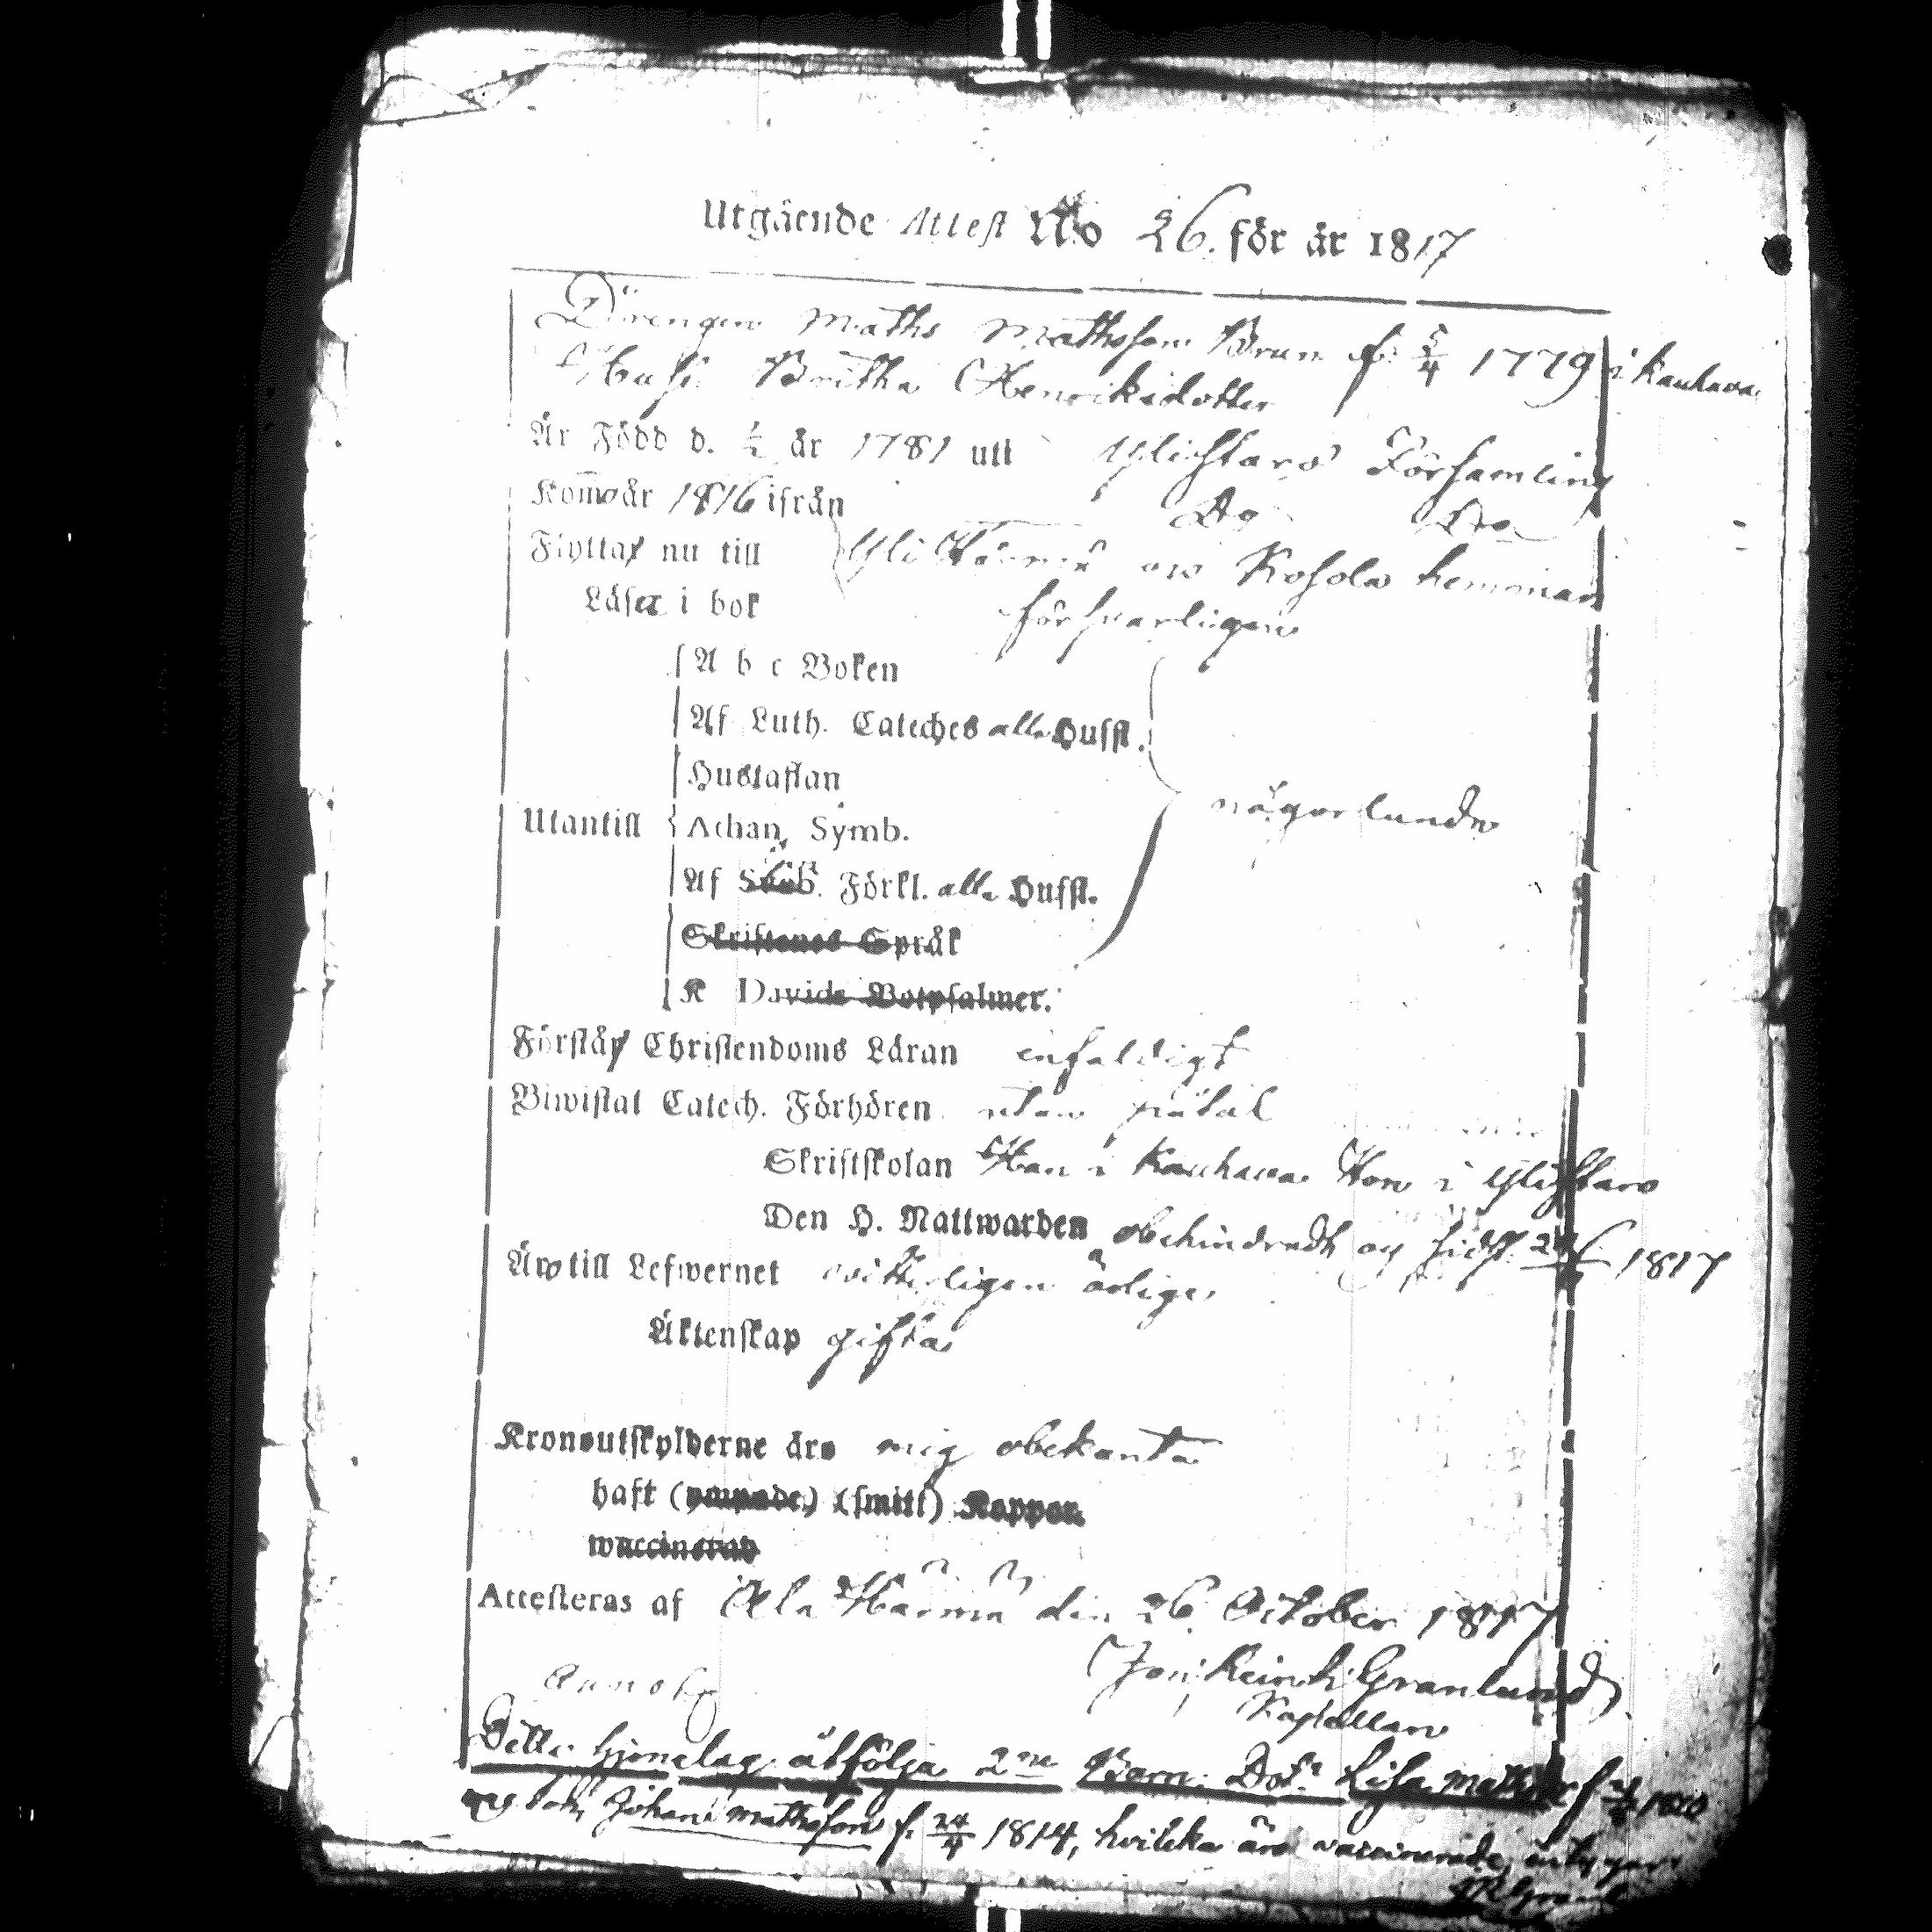 Utgående Attest No 26. för år 1817
Drengen Maths Mathsson Brun f. 5/4 1779 i Kauhava
Hust. Britha Henriksdotter
Är Född d. år 1781 uti Ylistaro Församling
Kom̄o år 1816 ifrån Do Do
Flytta nu till Yli Härmä och Kosola hemman
Läsa i bok försvarligen
A b c Boken
Af Luth. Cateches alla Hufst.
Hustaflan
Utantill Athan. Symb. någorlunda
Af Förkl. alla Hufst.
Skriftenes Språk
K Davids Botpsalmer.
Förstå Christendoms Läran enfaldigt
Biwistat Catech. Förhören utan påtal
Skriftskolan Han i Kauhava Hon i Ylistaro
Den H. Nattwarden obehindradt og sidst 1817
Äro till Lefwernet witterligen ärlige
Äktenskap gifta
Kronoutskylderne äro mig obekanta
haft (ympade) (smitt) Koppor
waccinerad
Attesteras af Ala Härmä den 26 October 1817
Joh. Heinr. Granlund
Kapellan
Detta hjonelag åtfölja 2ne Barn. Dotr Lisa f. 1810
og Johan Mathsson f. 24/4 1814, hvilka äro vaccinerade